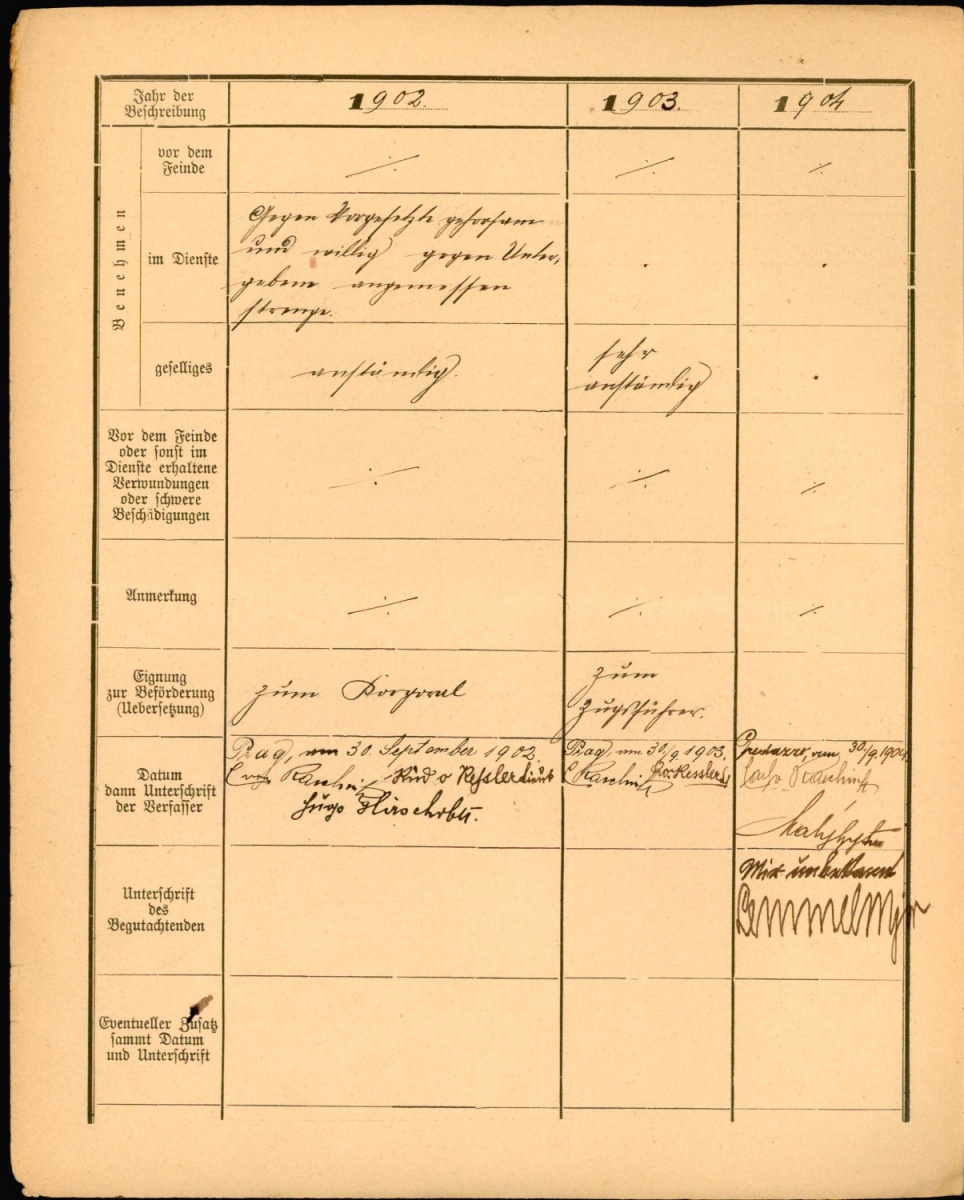 Jahr der
Beschreibung
1902.
1903.
1904
Benehmen
vor dem
Feinde
./.
./.
./.
im Dienste
Gegen Vorgesetzte gehorsam
und willig gegen Unter-
gebene angemessen
strenge.
geselliges
anständig.
sehr
anständig
Vor dem Feinde
oder sonst im
Dienste erhaltene
Verwundungen
oder schwere
Beschädigungen
./.
./.
./.
Anmerkung
./.
./.
./.
Eignung
zur Beförderung
(Uebersetzung)
zum Korporal
zum
Zugsführer.
Datum
dann Unterschrift
der Verfasser
Prag, am 30. September 1902.
v Kessler
Hugo
Prag, am 30/9. 1903.
Kessler
Predazzo, am 30/9. 1904.
Unterschrift
des
Begutachtenden
Mir unbekannt
Eventueller Zusatz
sammt Datum
und Unterschrift